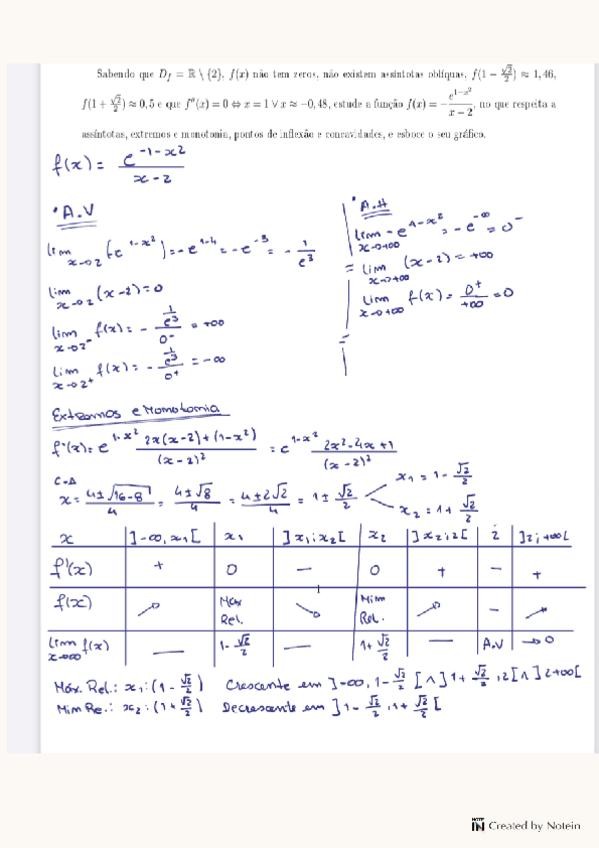 Sabendo que D_f = ℝ \ {2}, f(x) não tem zeros, não existem assíntotas oblíquas, f(1 − √2/2) ≈ 1,46,
f(1 + √2/2) ≈ 0,5 e que f''(x) = 0 ⇔ x = 1 ∨ x ≈ −0,48, estude a função f(x) = −e^(1−x²)/(x−2), no que respeita a
assíntotas, extremos e monotonia, pontos de inflexão e concavidades, e esboce o seu gráfico.
f(x) = e^(-1-x2)/(x-2)
• A.V
lim x→2 (-e^(1-x²)) = -e^(1-4) = -e^(-3) = -1/e³
lim x→2 (x-2) = 0
lim x→2⁻ f(x) = - (1/e³)/0⁻ = +∞
lim x→2⁺ f(x) = - (1/e³)/0⁺ = -∞
• A.H
lim x→+∞ -e^(1-x²) = -e^(-∞) = 0⁻
= lim x→+∞ (x-2) = +∞
lim x→+∞ f(x) = 0⁺/+∞ = 0
=
Extremos e Monotomia
f'(x) = e^(1-x²) (2x(x-2)+(1-x²))/(x-2)² = e^(1-x²) (2x²-4x+1)/(x-2)²
C.A
x = (4±√(16-8))/4 = (4±√8)/4 = (4±2√2)/4 = 1±√2/2
x₁ = 1 - √2/2
x₂ = 1 + √2/2
x ]-∞, x₁[ x₁ ]x₁; x₂[ x₂ ]x₂; 2[ 2 ]2; +∞[
f'(x) + 0 — 0 + — +
f(x) ↗ Máx Rel. ↘ Mim Rel. ↗ — ↗
lim x→∞ f(x) — 1-√2/2 — 1+√2/2 — A.V →0
Máx. Rel.: x₁: (1 - √2/2) Crescente em ]-∞, 1-√2/2 [∧] 1+√2/2, 2[∧] 2+∞[
Mim Re.: x₂: (1+√2/2) Decrescente em ]1-√2/2, 1+√2/2[
NOTE IN Created by Notein